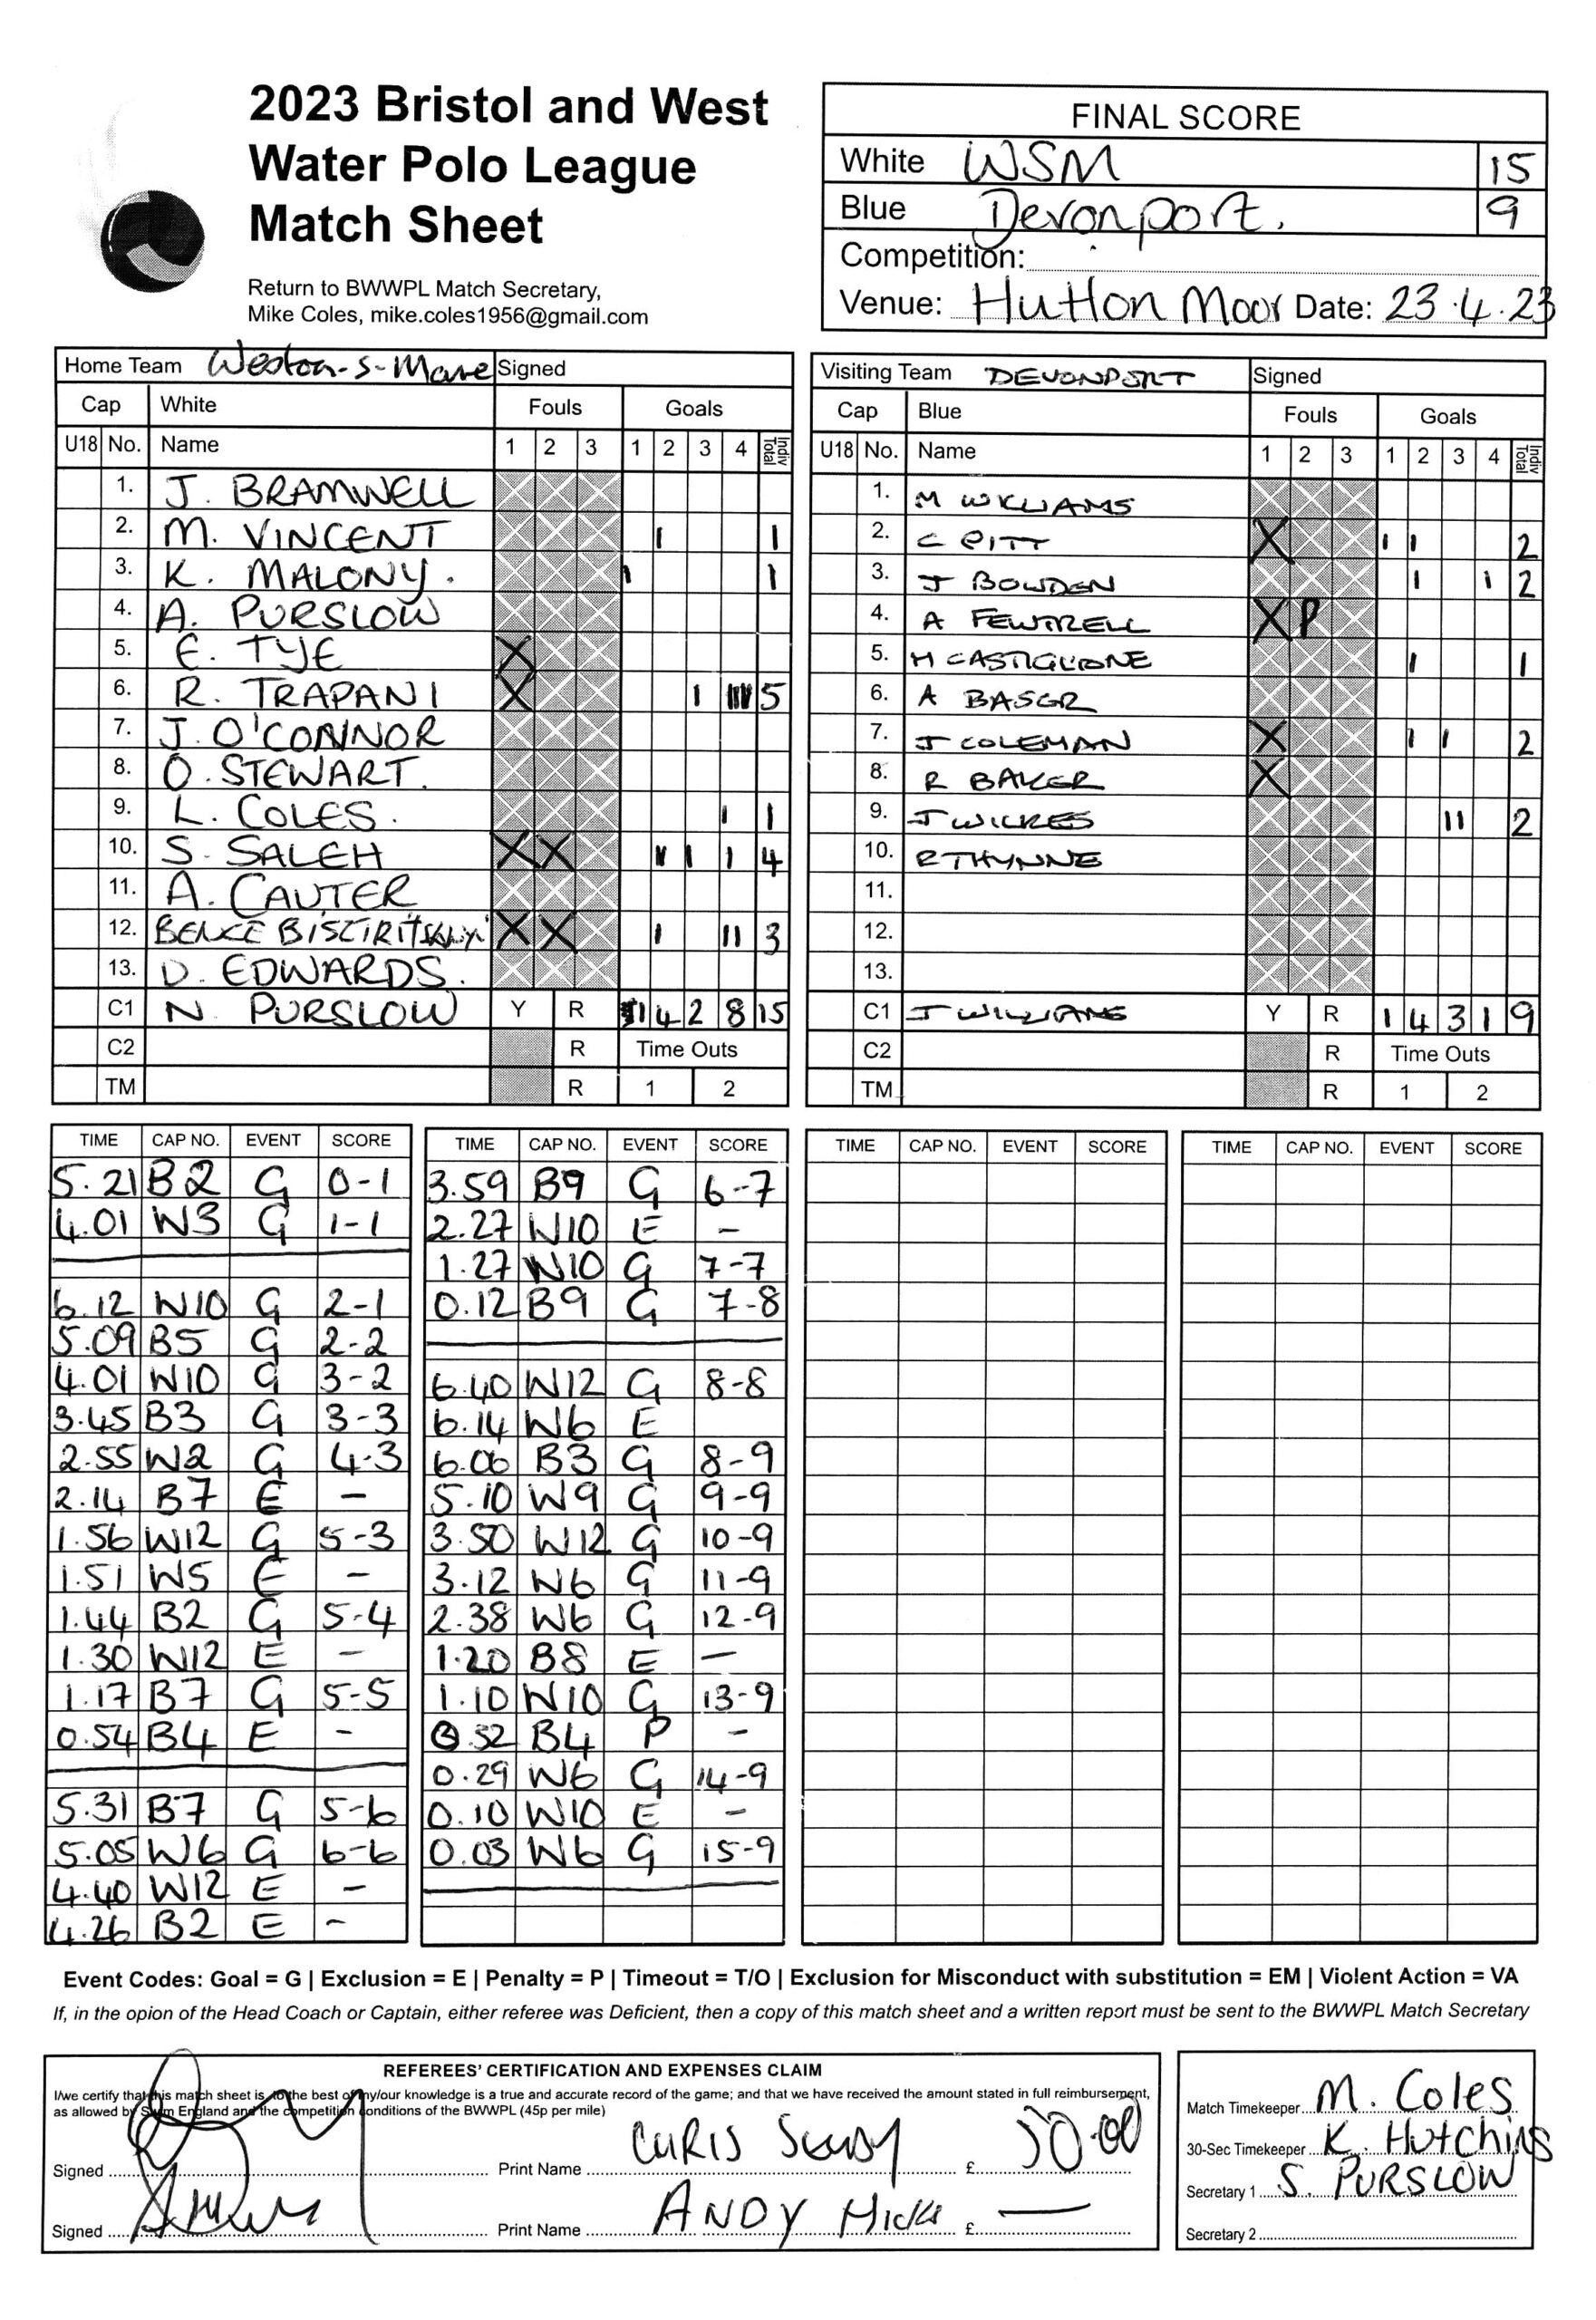 2023 Bristol and West
Water Polo League
Match Sheet
Return to BWWPL Match Secretary,
Mike Coles, mike.coles1956@gmail.com
FINAL SCORE
White WSM 15
Blue Devonport. 9
Competition:
Venue: Hutton Moor Date: 23.4.23
Home Team Weston-S-Mare Signed
Cap White Fouls Goals
U18 No. Name 1 2 3 1 2 3 4 Indiv Total
1. J. BRAMWELL
2. M. VINCENT I 1
3. K. MALONY. I 1
4. A. PURSLOW
5. E. TYE X
6. R. TRAPANI X I IIII 5
7. J. O'CONNOR
8. O. STEWART.
9. L. COLES. I 1
10. S. SALEH X X II I I 4
11. A. CAUTER
12. BENCE X X I II 3
13. D. EDWARDS.
C1 N. PURSLOW Y R 1 4 2 8 15
C2 R Time Outs
TM R 1 2
Visiting Team DEVONPORT Signed
Cap Blue Fouls Goals
U18 No. Name 1 2 3 1 2 3 4 Indiv Total
1. M WILLIAMS
2. C PITT X I I 2
3. J BOWDEN I I 2
4. A FEWTRELL X P
5. M CASTIGLIONE I 1
6. A BASGR
7. J COLEMAN X I I 2
8. R BAKER X
9. J WILKES II 2
10. R THYNNE
11.
12.
13.
C1 J WILLIAMS Y R 1 4 3 1 9
C2 R Time Outs
TM R 1 2
TIME CAP NO. EVENT SCORE
5.21 B2 G 0-1
4.01 W3 G 1-1
6.12 W10 G 2-1
5.09 B5 G 2-2
4.01 W10 G 3-2
3.45 B3 G 3-3
2.55 W2 G 4-3
2.14 B7 E -
1.56 W12 G 5-3
1.51 W5 E -
1.44 B2 G 5-4
1.30 W12 E -
1.17 B7 G 5-5
0.54 B4 E -
5.31 B7 G 5-6
5.05 W6 G 6-6
4.40 W12 E -
4.26 B2 E -
TIME CAP NO. EVENT SCORE
3.59 B9 G 6-7
2.27 W10 E -
1.27 W10 G 7-7
0.12 B9 G 7-8
6.40 W12 G 8-8
6.14 W6 E
6.06 B3 G 8-9
5.10 W9 G 9-9
3.50 W12 G 10-9
3.12 W6 G 11-9
2.38 W6 G 12-9
1.20 B8 E -
1.10 W10 G 13-9
0.52 B4 P -
0.29 W6 G 14-9
0.10 W10 E -
0.03 W6 G 15-9
TIME CAP NO. EVENT SCORE
TIME CAP NO. EVENT SCORE
Event Codes: Goal = G | Exclusion = E | Penalty = P | Timeout = T/O | Exclusion for Misconduct with substitution = EM | Violent Action = VA
If, in the opion of the Head Coach or Captain, either referee was Deficient, then a copy of this match sheet and a written report must be sent to the BWWPL Match Secretary
REFEREES' CERTIFICATION AND EXPENSES CLAIM
I/we certify that this match sheet is to the best of my/our knowledge is a true and accurate record of the game; and that we have received the amount stated in full reimbursement,
as allowed by Swim England and the competition conditions of the BWWPL (45p per mile)
Signed Print Name CHRIS £ 50.00
Signed Print Name ANDY Hicks £ —
Match Timekeeper M. Coles
30-Sec Timekeeper K. Hutchins
Secretary 1 S. PURSLOW
Secretary 2